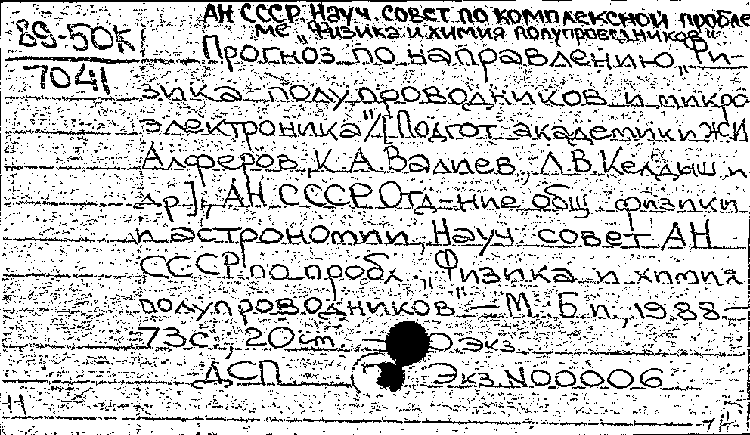 АН СССР. Науч. совет по комплексной пробле
ме „Физика и химия полупроводников"
89-50К
7041
Прогноз по направлению „Фи-
зика полупроводников и микро
электроника"/[Подгот. академики Ж.И.
Алферов, К.А. Валиев, Л.В. Келдыш и
др.]; АН СССР. Отд-ние общ. физики
и астрономии, Науч. совет АН
СССР по пробл. „Физика и химия
полупроводников" – М.: Б.и., 1988 –
73с., 20 см. – экз.
ДСП Экз. N00006